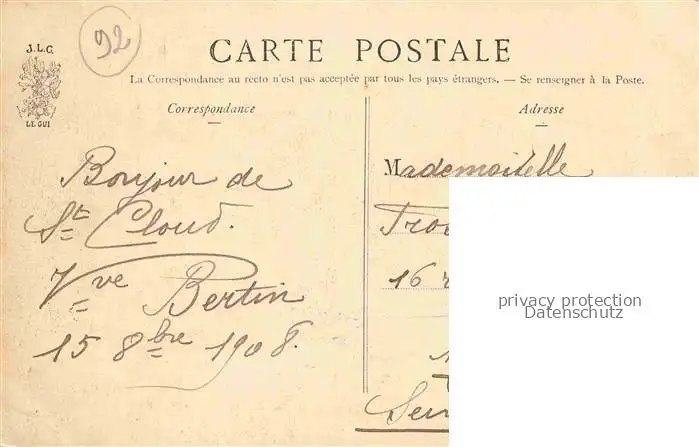 92
J.L.C.
LE GUI
CARTE POSTALE
La Correspondance au recto n'est pas acceptée par tous les pays étrangers. — Se renseigner à la Poste.
Correspondance
Bonjour de
St Cloud.
Vve Bertin
15 8bre 1908.
Adresse
Mademoiselle
16
privacy protection
Datenschutz